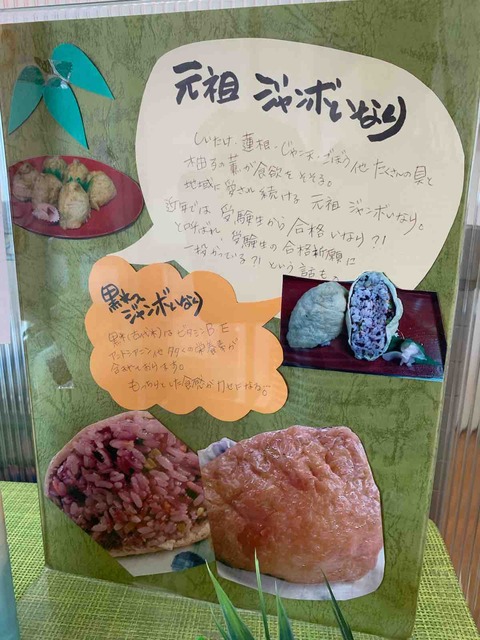 元祖 ジャンボいなり
しいたけ・蓮根・じゃこ天・ごぼう 他 たくさんの具と
柚子の薫が食欲をそそる。
地域に愛され続ける 元祖 ジャンボいなり。
近年では 受験生から 合格いなり?!
と呼ばれ、受験生の合格祈願に
一役かっている?! という 話も。
黒米入
ジャンボいなり
黒米(古代米)は ビタミンB・E
アントシアニン他 多くの栄養素が
含まれております。
もっちりとした食感がクセになる。